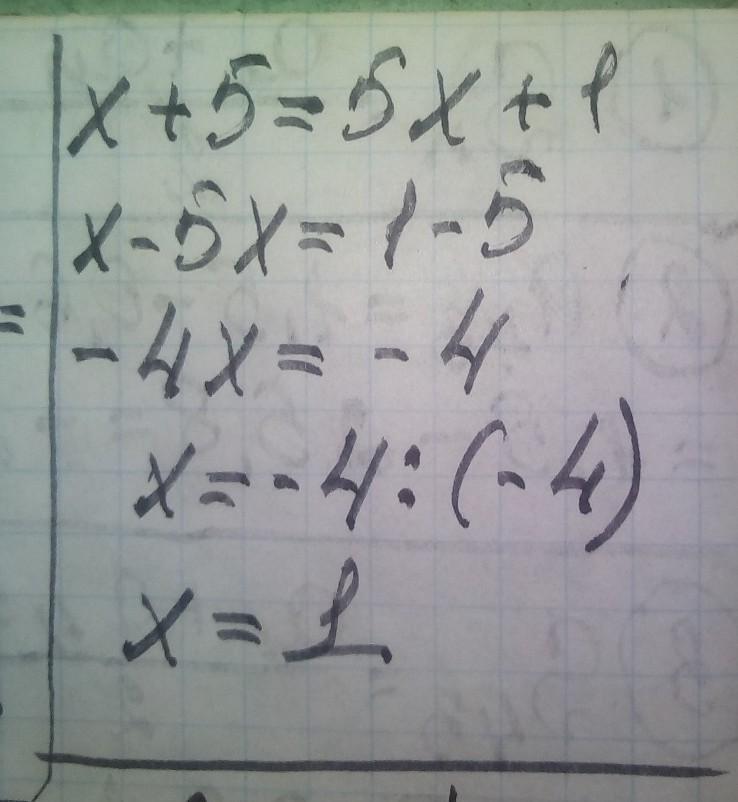 x+5=5x+1
x-5x=1-5
-4x=-4
x=-4:(-4)
x=1